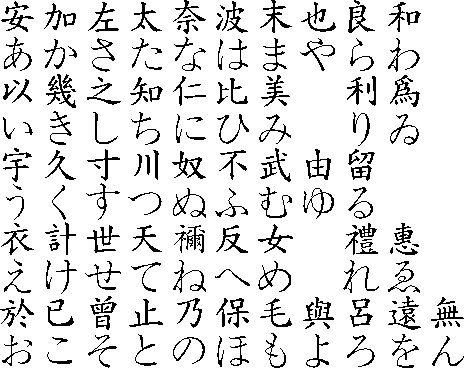 安加左太奈波末也良和
あかさたなはまやらわ
以幾之知仁比美利爲
いきしちにひみりゐ
宇久寸川奴不武由留
うくすつぬふむゆる
衣計世天禰反女禮惠
えけせてねへめれゑ
於已曾止乃保毛與呂遠無
おこそとのほもよろをん